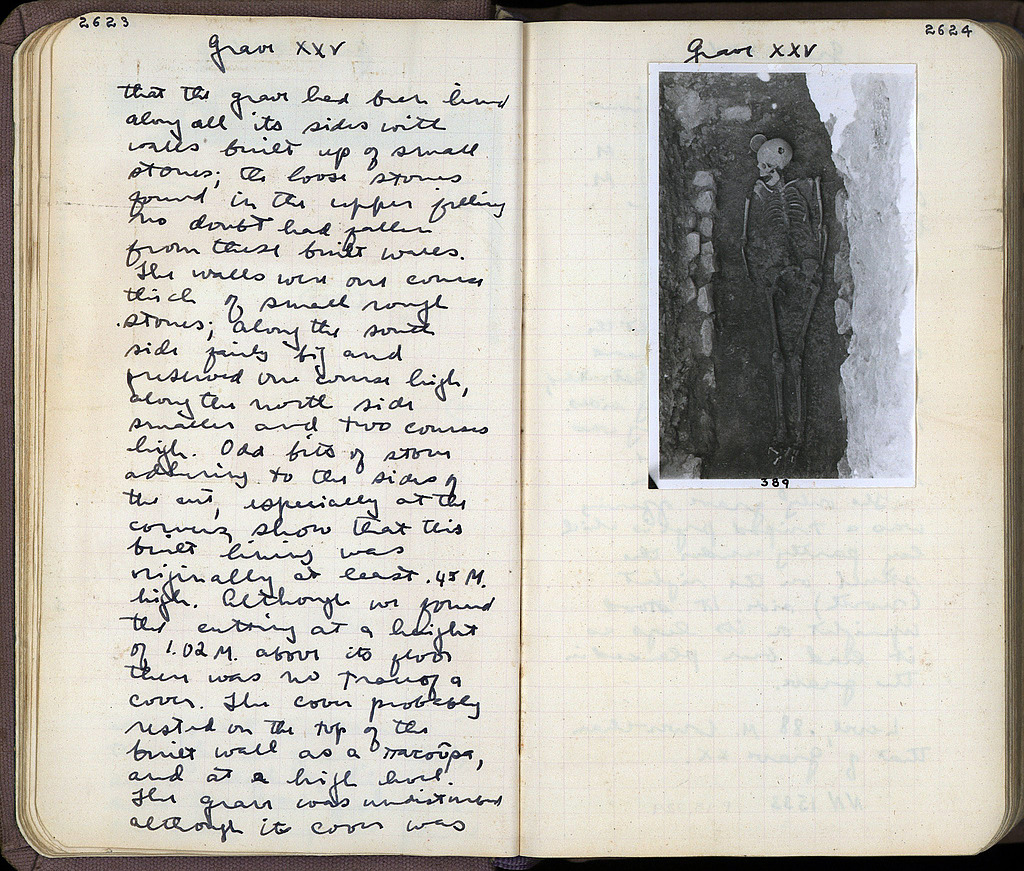 2623
Grave XXV
that the grave had been lined
along all its sides with
walls built up of small
stones; the loose stones
found in the upper filling
no doubt had fallen
from these built walls.
The walls were one course
thick of small rough
stones; along the south
side fairly big and
preserved one course high,
along the north side
smaller and two courses
high. Odd bits of stone
adhering to the sides of
the cut, especially at the
corners, show that this
built lining was
originally at least .45 M.
high. Although we found
the cutting at a height
of 1.02 M. above its floor
there was no trace of a
cover. The cover probably
rested on the top of the
built wall as a πατοῦρα,
and at a high level.
The grave was undisturbed
although its cover was
2624
Grave XXV
389